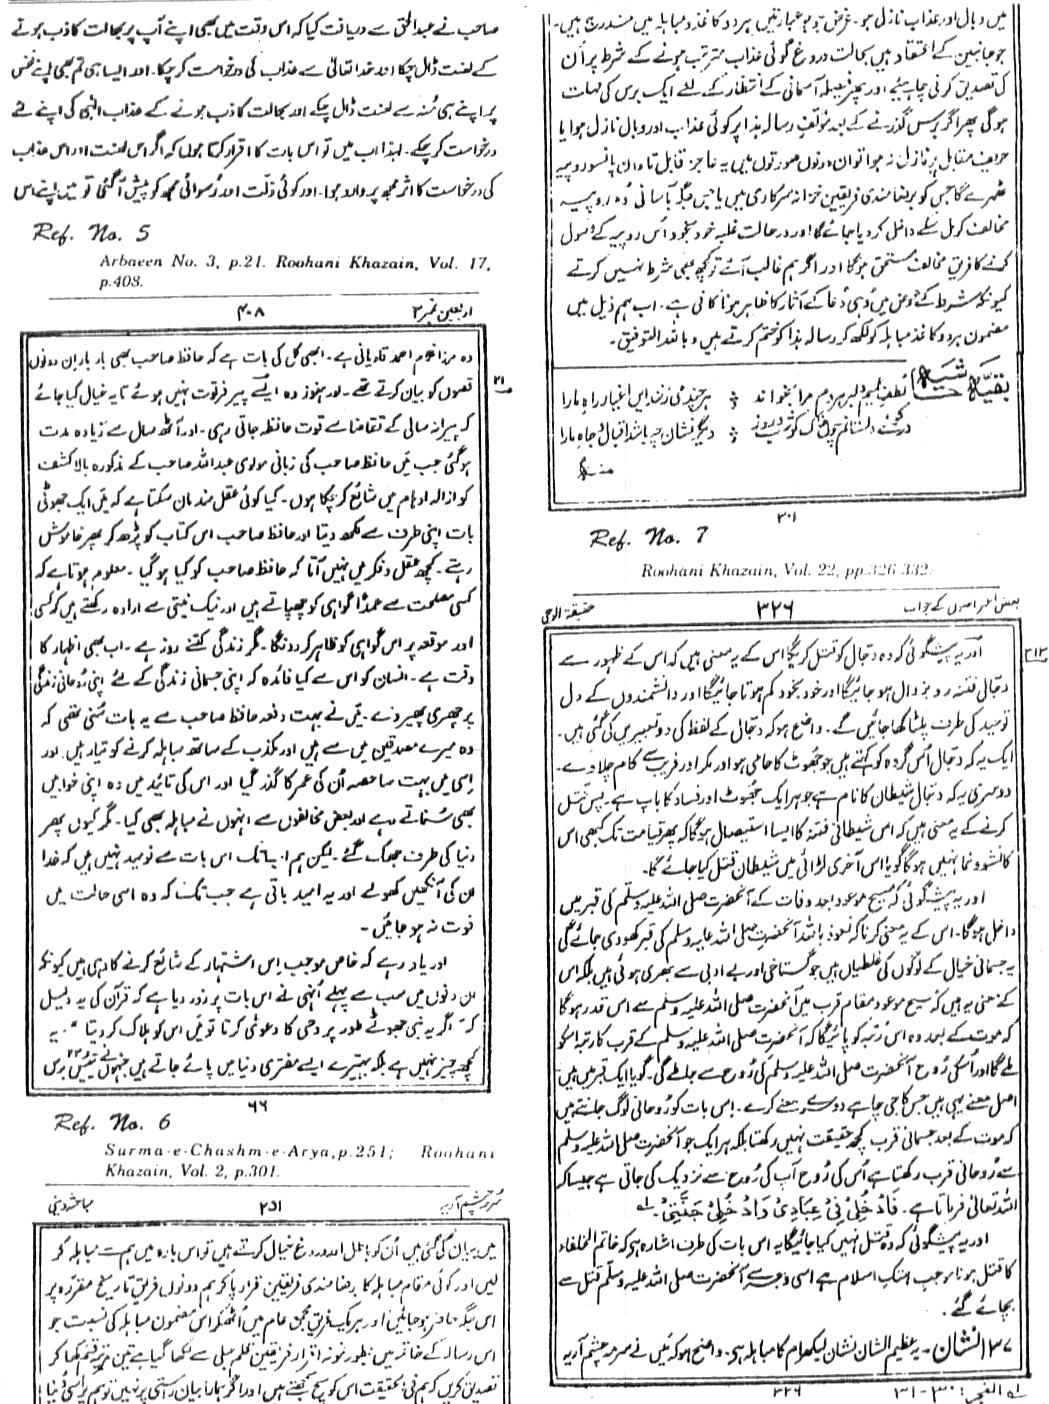 صاحب نے عبدالحق سے دریافت کیا کہ اس وقت میں بھی اپنے آپ پر بحالت کاذب ہونے
کے لعنت ڈال چکا اور خدا تعالیٰ سے عذاب کی درخواست کر چکا۔ اور ایسا ہی تم بھی اپنے نفس
پر اپنے ہی مُنہ سے لعنت ڈال چکے اور بحالت کاذب ہونے کے عذاب الٰہی کی اپنے لئے
درخواست کر چکے۔ لہذا اب میں تو اس بات کا اقرار کرتا ہوں کہ اگر اس لعنت اور اس عذاب
کی درخواست کا اثر مجھ پر وارد ہوا۔ اور کوئی ذلّت اور رُسوائی مجھ کو پیش آگئی تو میں اپنے اس
Ref. No. 5
Arbaeen No. 3, p.21. Roohani Khazain, Vol. 17,
p.408.
اربعین نمبر ۳
۴۰۸
وہ مرزا غلام احمد قادیانی ہے۔ ابھی کل کی بات ہے کہ حافظ صاحب بھی بار بار ان دونوں
قصوں کو بیان کرتے تھے۔ اور ہنوز وہ ایسے پیر فرتوت نہیں ہوئے تا یہ خیال کیا جائے
۲۱
کہ پیرانہ سالی کے تقاضا سے قوت حافظہ جاتی رہی۔ اور آٹھ سال سے زیادہ مدت
ہوگئی جب میں حافظ صاحب کی زبانی مولوی عبداللہ صاحب کے مذکورہ بالا کشف
کو ازالہ اوہام میں شائع کر چکا ہوں۔ کیا کوئی عقلمند مان سکتا ہے کہ میں ایک جھوٹی
بات اپنی طرف سے لکھ دیتا اور حافظ صاحب اس کتاب کو پڑھ کر پھر خاموش
رہتے۔ کچھ عقل و فکر میں نہیں آتا کہ حافظ صاحب کو کیا ہو گیا۔ معلوم ہوتا ہے کہ
کسی مصلحت سے عمداً گواہی کو چھپاتے ہیں اور نیک نیتی سے ارادہ رکھتے ہیں کہ کسی
اور موقعہ پر اس گواہی کو ظاہر کر دونگا۔ مگر زندگی کتنے روز ہے۔ اب بھی اظہار کا
وقت ہے۔ انسان کو اس سے کیا فائدہ کہ اپنی جسمانی زندگی کے لئے اپنی رُوحانی زندگی
پر چھری پھیر دے۔ میں نے بہت دفعہ حافظ صاحب سے یہ بات سُنی تھی کہ
وہ میرے مصدقین میں سے ہیں اور مکذب کے ساتھ مباہلہ کرنے کو تیار ہیں اور
اِسی میں بہت سا حصہ اُن کی عمر کا گذر گیا اور اس کی تائید میں وہ اپنی خوابیں
بھی سُناتے رہے اور بعض مخالفوں سے انہوں نے مباہلہ بھی کیا۔ مگر کیوں پھر
دنیا کی طرف جھک گئے۔ لیکن ہم اب تک اس بات سے نومید نہیں ہیں کہ خدا
ان کی آنکھیں کھولے اور یہ امید باقی ہے جب تک کہ وہ اسی حالت میں
فوت نہ ہو جائیں۔
اور یاد رہے کہ خاص موجب اِس اشتہار کے شائع کرنے کا وہی ہیں کیونکہ
ان دنوں میں سب سے پہلے اُنہی نے اس بات پر زور دیا ہے کہ قرآن کی یہ دلیل
کہ ”اگر یہ نبی جھوٹے طور پر وحی کا دعویٰ کرتا تو میں اس کو ہلاک کر دیتا“۔ یہ
کچھ چیز نہیں ہے بلکہ بہتیرے ایسے مفتری دنیا میں پائے جاتے ہیں جنہوں نے تیئیس۲۳ برس
۶۶
Ref. No. 6
Surma-e-Chashm-e-Arya,p.251; Roohani
Khazain, Vol. 2, p.301.
سرمہ چشم آریہ
۲۵۱
مباحثہ دینی
میں بیان کی گئی ہیں اُن کو باطل اور دروغ خیال کرتے ہیں تو اس بارہ میں ہم سے مباہلہ کر
لیں اور کوئی مقام مباہلہ کا برضامندی فریقین قرار پا کر ہم دونوں فریق تاریخ مقررہ پر
اس جگہ حاضر ہو جائیں اور ہر یک فریق مجمع عام میں اُٹھ کر اس مضمون مباہلہ کی نسبت جو
اس رسالہ کے خاتمہ میں بطور نمونہ اقرار فریقین قلم جلی سے لکھا گیا ہے تین مرتبہ قسم کھا کر
تصدیق کریں کہ ہم فی الحقیقت اس کو سچ سمجھتے ہیں اور اگر ہمارا بیان راستی پر نہیں تو ہم پر اسی دنیا
میں وبال اور عذاب نازل ہو۔ غرض جو جو عبارتیں ہر دو کاغذ مباہلہ میں مندرج ہیں۔
جو جانبین کے اعتقاد ہیں بحالت دروغ گوئی عذاب مترتب ہونے کے شرط پر اُن
کی تصدیق کرنی چاہیئے اور پھر فیصلہ آسمانی کے انتظار کے لئے ایک برس کی مہلت
ہوگی پھر اگر برس گذرنے کے بعد مؤلف رسالہ ہذا پر کوئی عذاب اور وبال نازل ہوا یا
حریف مقابل پر نازل نہ ہوا تو ان دونوں صورتوں میں یہ عاجز قابل تاوان پانسو روپیہ
ٹھہرے گا جس کو برضامندی فریقین خزانہ سرکاری میں یا جس جگہ بآسانی وُہ روپیہ
مخالف کو مل سکے داخل کر دیا جائے گا اور درحالت غلبہ خود بخود اُس روپیہ کے وصول
کرنے کا فریق مخالف مستحق ہوگا اور اگر ہم غالب آئے تو کچھ بھی شرط نہیں کرتے
کیونکہ شرط کے عوض میں وُہی دُعا کے آثار کا ظاہر ہونا کافی ہے۔ اب ہم ذیل میں
مضمون ہر دو کاغذ مباہلہ کو لکھ کر رسالہ ہذا کو ختم کرتے ہیں و باللہ التوفیق۔
بقیہ حاشیہ
ہر چندمی زند ایں اغیار راہ مارا
دیگر نشان چہ باشد اقبال و جاہ مارا
منہ
۳۰۱
Ref. No. 7
Roohani Khazain, Vol. 22, pp.326-332.
بعض اعتراضوں کے جواب
۳۲۶
حقیقۃ الوحی
اور یہ پیشگوئی کہ وہ دجّال کو قتل کریگا اس کے یہ معنی ہیں کہ اس کے ظہور سے
۳۱۳
دجّالی فتنہ رو بزوال ہو جائیگا اور خود بخود کم ہوتا جائیگا اور دانشمندوں کے دل
توحید کی طرف پلٹا کھا جائیں گے۔ واضح ہو کہ دجّال کے لفظ کی دو تعبیریں کی گئی ہیں۔
ایک یہ کہ دجّال اُس گروہ کو کہتے ہیں جو جُھوٹ کا حامی ہو اور مکر اور فریب سے کام چلاوے۔
دوسری یہ کہ دجّال شیطان کا نام ہے جو ہر ایک جُھوٹ اور فساد کا باپ ہے۔ پس قتل
کرنے کے یہ معنی ہیں کہ اس شیطانی فتنہ کا ایسا استیصال ہوگا کہ پھر قیامت تک کبھی اس
کا نشوونما نہیں ہوگا گویا اس آخری لڑائی میں شیطان قتل کیا جائے گا۔
اور یہ پیشگوئی کہ مسیح موعود بعد وفات کے آنحضرت صلی اللہ علیہ وسلّم کی قبر میں
داخل ہوگا۔ اس کے یہ معنی کرنا کہ نعوذ باللہ آنحضرت صلی اللہ علیہ وسلم کی قبر کھودی جائے گی
یہ جسمانی خیال کے لوگوں کی غلطیاں ہیں جو گستاخی اور بے ادبی سے بھری ہوئی ہیں بلکہ اس
کے معنی یہ ہیں کہ مسیح موعود مقام قرب میں آنحضرت صلی اللہ علیہ وسلم سے اس قدر ہوگا
کہ موت کے بعد وہ اس رُتبہ کو پائیگا کہ آنحضرت صلی اللہ علیہ وسلم کے قرب کا رتبہ اسکو
ملے گا اور اُسکی رُوح آنحضرت صلی اللہ علیہ وسلم کی رُوح سے جا ملے گی۔ گویا ایک قبر میں ہیں
اصل معنے یہی ہیں جس کا جی چاہے دوسرے معنے کرے۔ اِس بات کو رُوحانی لوگ جانتے ہیں
کہ موت کے بعد جسمانی قرب کچھ حقیقت نہیں رکھتا بلکہ ہر ایک جو آنحضرت صلی اللہ علیہ وسلم
سے رُوحانی قرب رکھتا ہے اُس کی رُوح آپ کی رُوح سے نزدیک کی جاتی ہے جیسا کہ
اللہ تعالیٰ فرماتا ہے۔ فَادْخُلِیْ فِیْ عِبَادِیْ وَادْخُلِیْ جَنَّتِیْ۔ ۱؎
اور یہ پیشگوئی کہ وہ قتل نہیں کیا جائیگا یہ اس بات کی طرف اشارہ ہے کہ خاتم الخلفاء
کا قتل ہونا موجب ہتک اسلام ہے اسی وجہ سے آنحضرت صلی اللہ علیہ وسلّم قتل سے
بچائے گئے۔
۱۳۷ نشان۔ یہ عظیم الشان نشان لیکھرام کا مباہلہ ہے۔ واضح ہو کہ میں نے سرمہ چشم آریہ
۱؎ الفجر: ۳۰-۳۱
۳۲۶